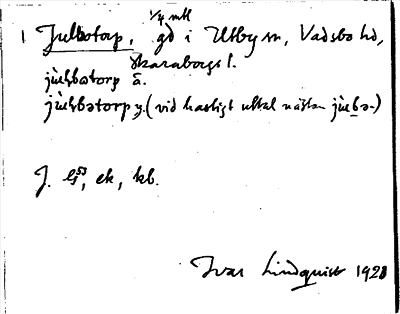 1 Julbotorp, 1/4 mtl gd i Utby sn, Vadsbo hd,
Skaraborgs l.
jùɫbotorp ä.
jùɫbətorp y. (vid hastigt uttal nästan jùbə-)
J. ek, kb.
Ivar Lindquist 1921